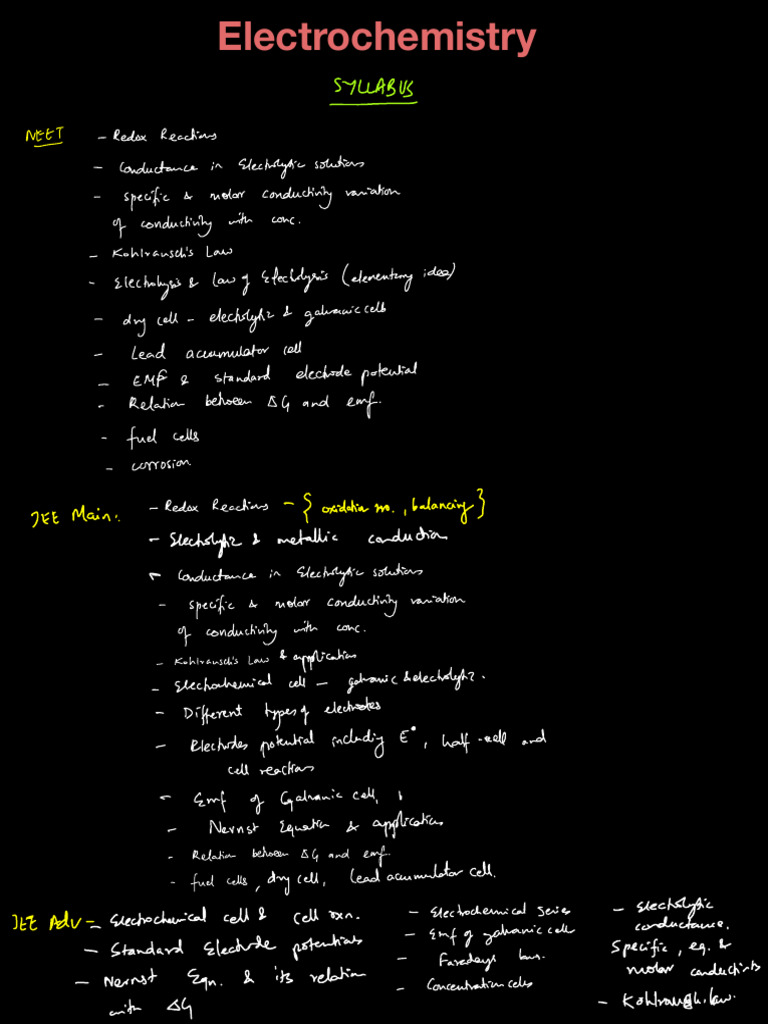 Electrochemistry
SYLLABUS
NEET
- Redox Reactions
- Conductance in Electrolytic solutions
- specific & molar conductivity variation
of conductivity with conc.
- Kohlrausch's Law
- Electrolysis & law of Electrolysis (elementary idea)
- dry cell - electrolytic & galvanic cells
- Lead accumulator cell
- EMF & standard electrode potential
- Relation between ΔG and emf.
- fuel cells
- corrosion
JEE Main:
- Redox Reactions - { oxidation no., balancing }
- Electrolytic & metallic conduction
- Conductance in Electrolytic solutions
- specific & molar conductivity variation
of conductivity with conc.
- Kohlrausch's Law & application
- Electrochemical cell - galvanic & electrolytic.
- Different types of electrodes
- Electrodes potential including E°, half-cell and
cell reactions
- Emf of Galvanic cell,
- Nernst Equation & application
- Relation between ΔG and emf.
- fuel cells, dry cell, Lead accumulator cell.
JEE Adv -
- Electrochemical cell & cell rxn.
- Standard Electrode potentials
- Nernst Eqn. & its relation
with ΔG
- Electrochemical series
- Emf of galvanic cell
- Faradays laws.
- Concentration cells
- Electrolytic
conductance.
Specific, eq. &
molar conductivity
- Kohlraush. law.